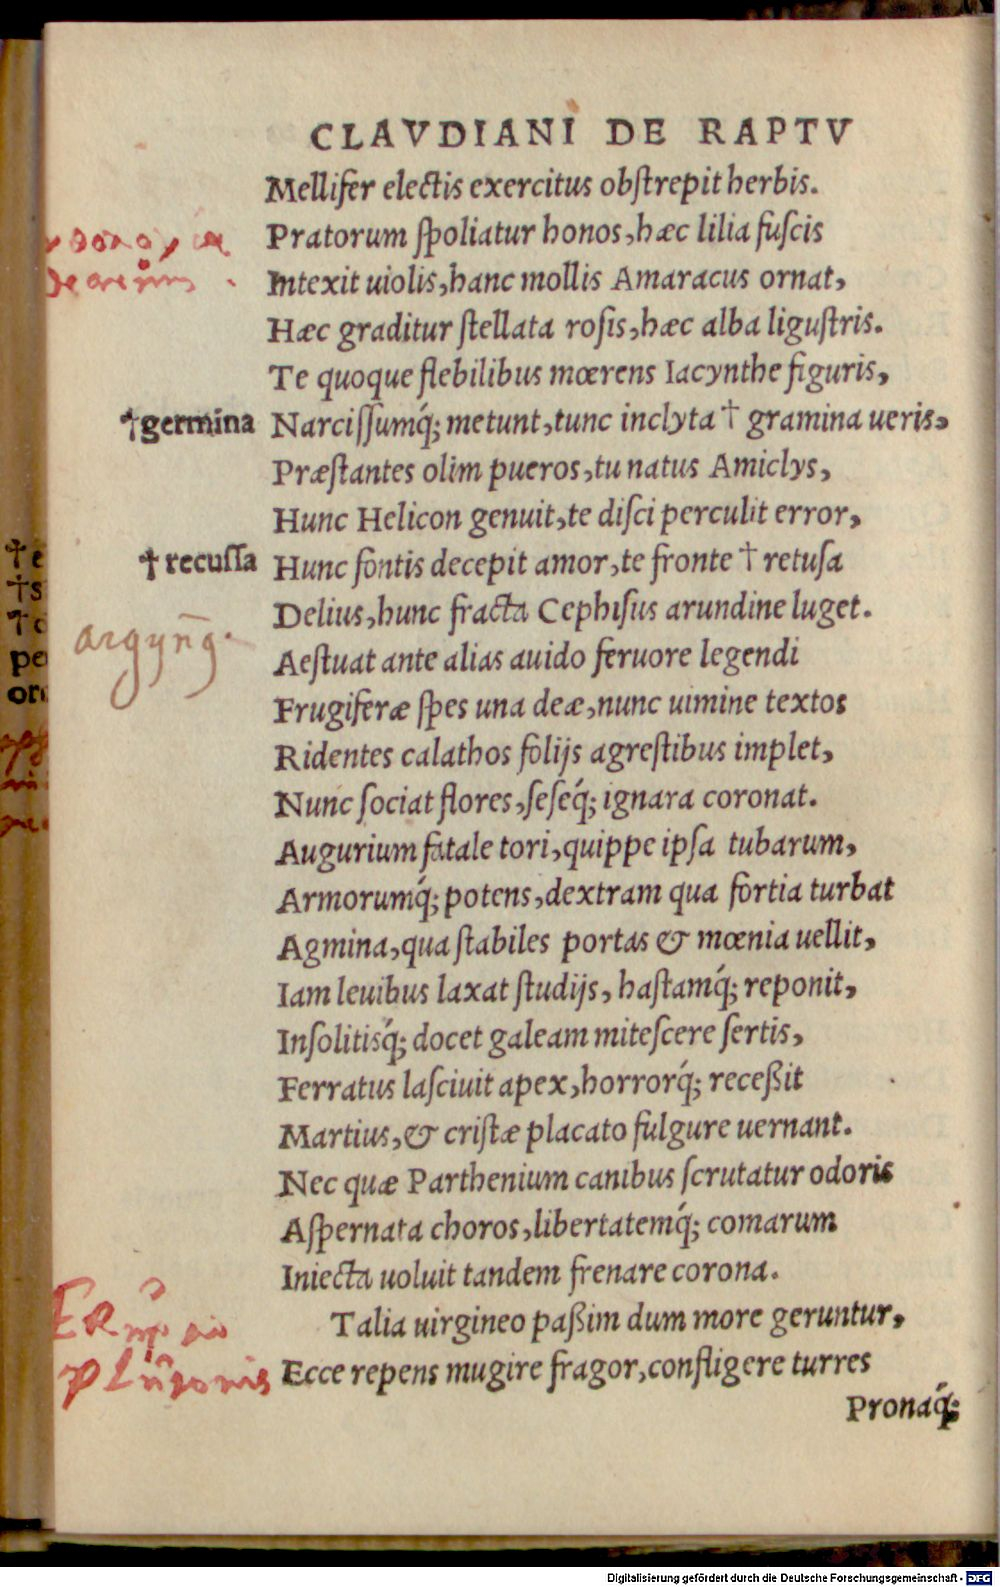 CLAVDIANI DE RAPTV
Mellifer electis exercitus obſtrepit herbis.
Pratorum ſpoliatur honos, hæc lilia fuſcis
Intexit uiolis, hanc mollis Amaracus ornat,
Hæc graditur ſtellata roſis, hæc alba liguſtris.
Te quoque flebilibus mœrens Iacynthe figuris,
†germina Narciſſumq́; metunt, tunc inclyta † gramina ueris,
Præſtantes olim pueros, tu natus Amiclys,
Hunc Helicon genuit, te diſci perculit error,
† recuſſa Hunc fontis decepit amor, te fronte † retuſa
Delius, hunc fracta Cephiſus arundine luget.
Aeſtuat ante alias auido feruore legendi
Frugiferæ ſpes una deæ, nunc uimine textos
Ridentes calathos folijs agreſtibus implet,
Nunc ſociat flores, ſeſeq́; ignara coronat.
Augurium fatale tori, quippe ipſa tubarum,
Armorumq́; potens, dextram qua fortia turbat
Agmina, qua ſtabiles portas & mœnia uellit,
Iam leuibus laxat ſtudijs, haſtamq́; reponit,
Inſolitisq́; docet galeam miteſcere ſertis,
Ferratus laſciuit apex, horrorq́; receßit
Martius, & criſtæ placato fulgure uernant.
Nec quæ Parthenium canibus ſcrutatur odoris
Aſpernata choros, libertatemq́; comarum
Iniecta uoluit tandem frenare corona.
Talia uirgineo paßim dum more geruntur,
Ecce repens mugire fragor, confligere turres
Pronaq́;
Digitalisierung gefördert durch die Deutsche Forschungsgemeinschaft - DFG